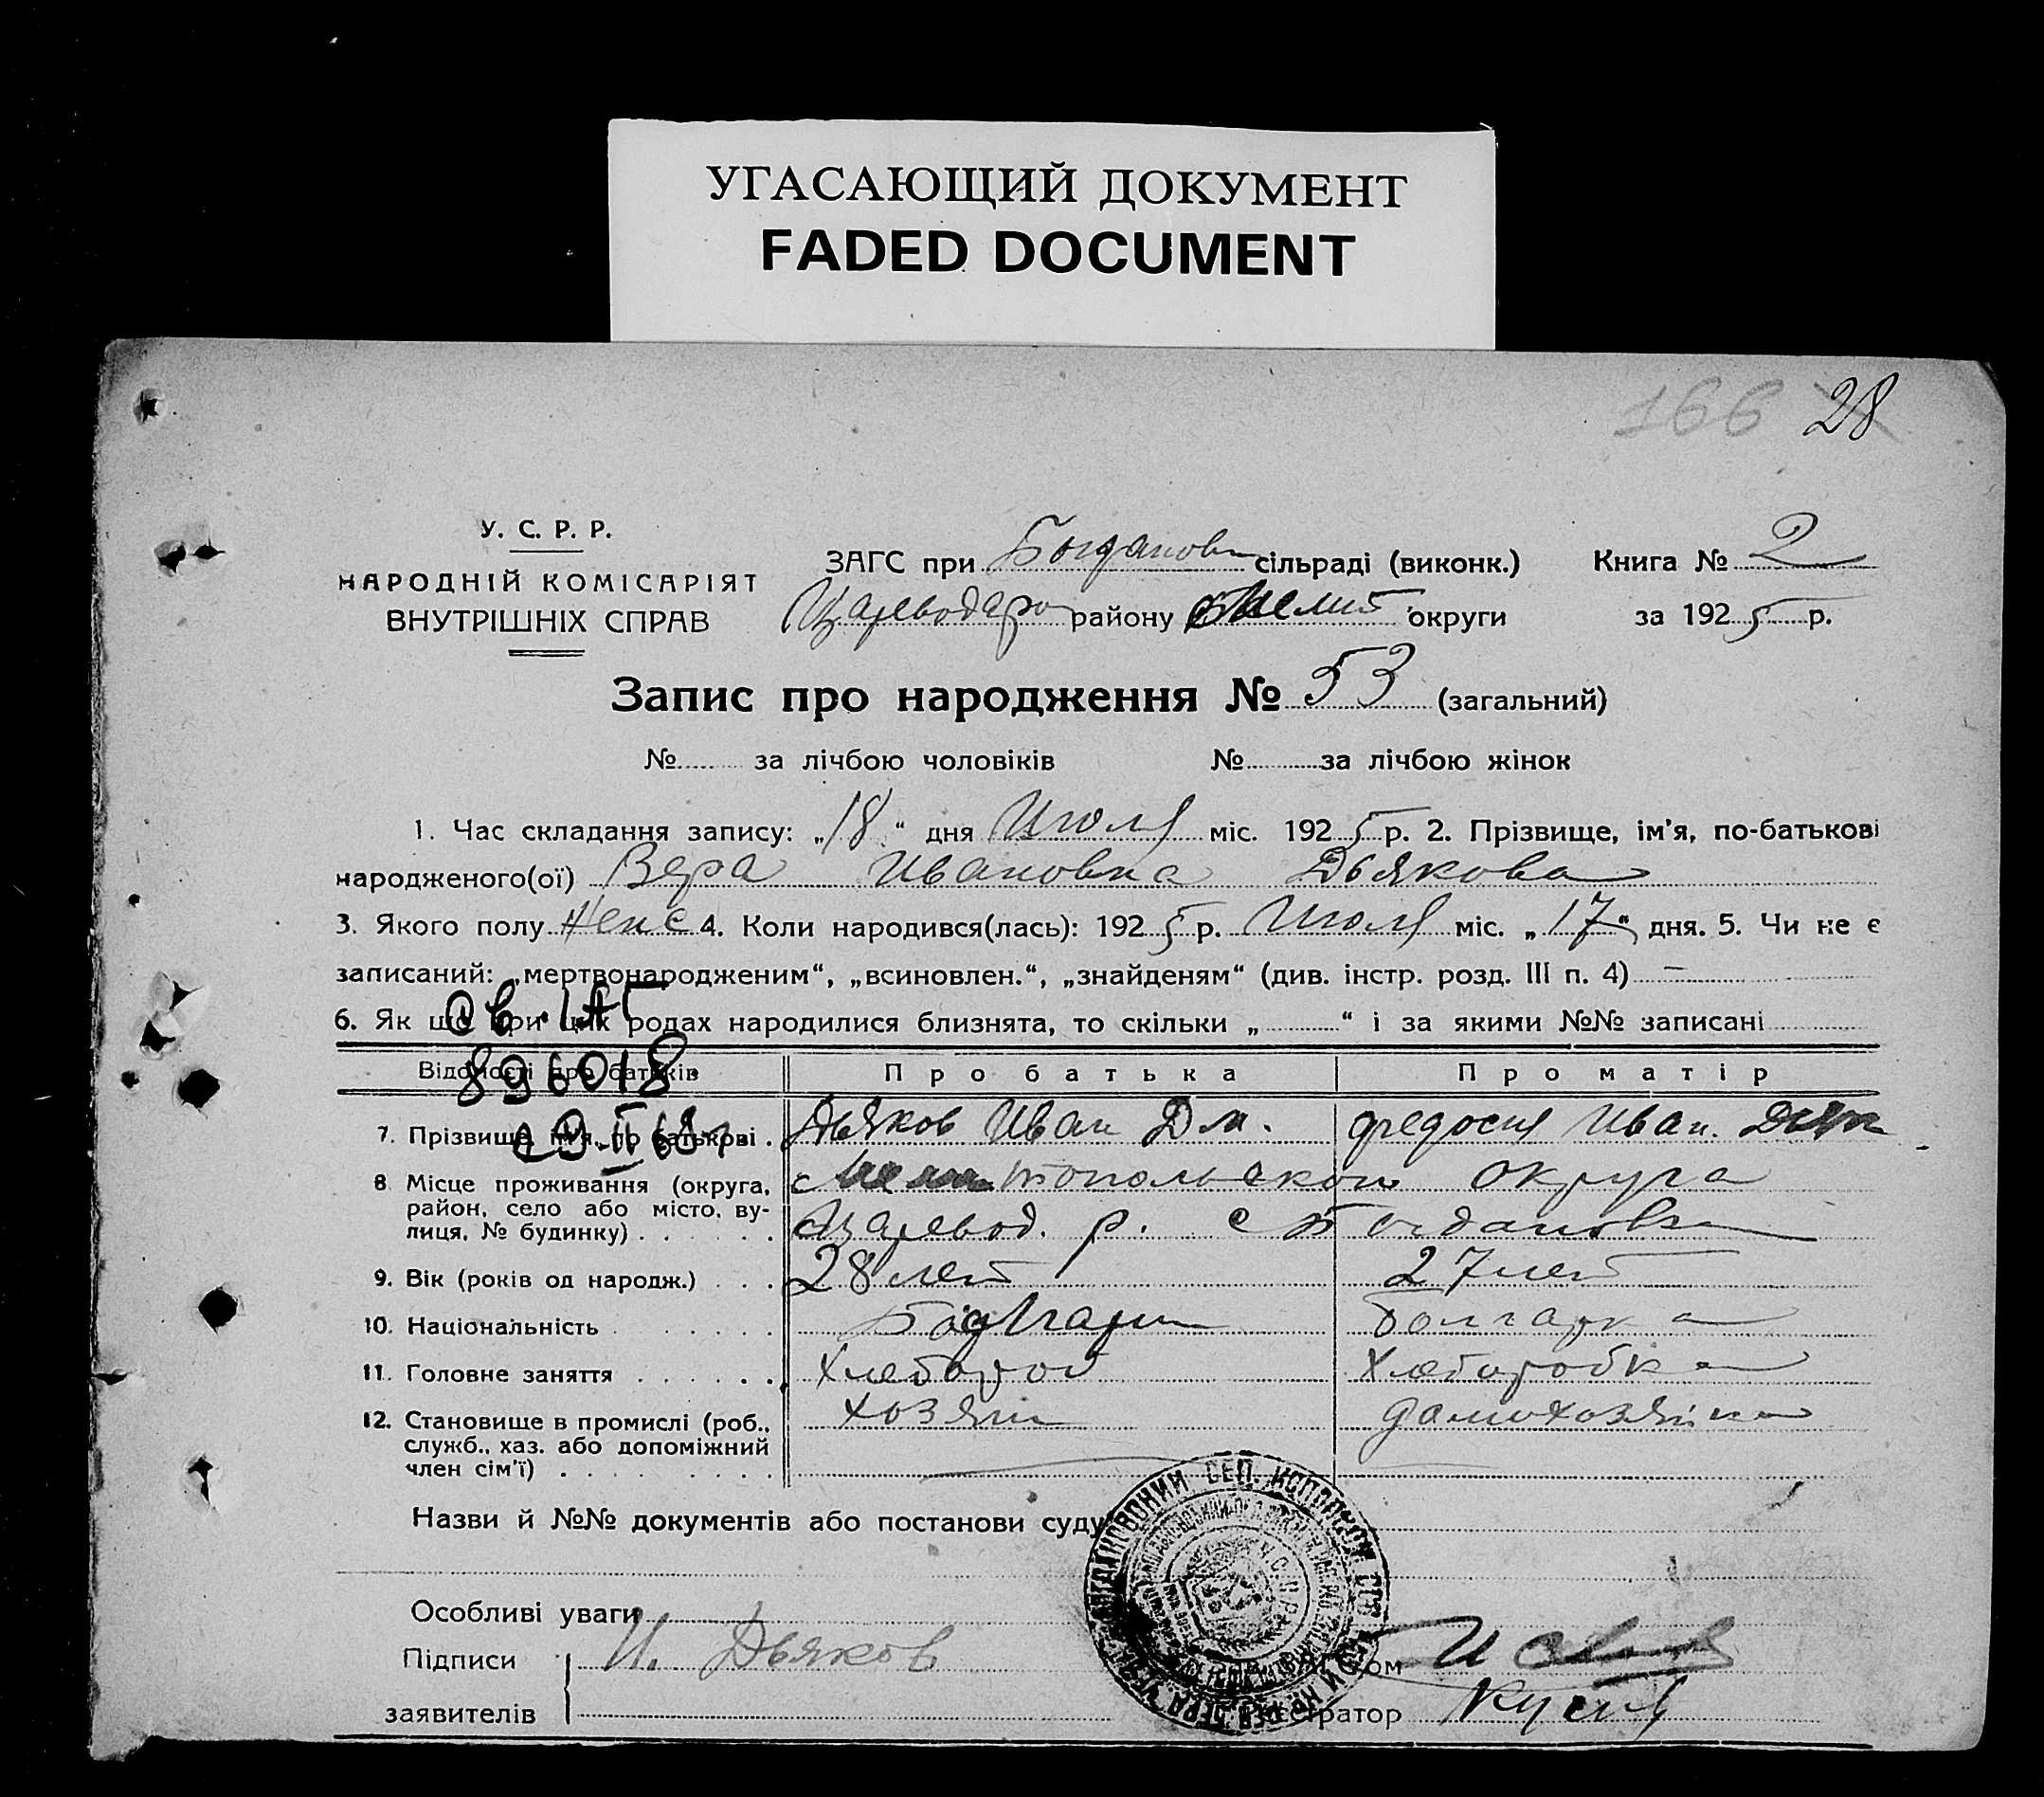 УГАСАЮЩИЙ ДОКУМЕНТ
FADED DOCUMENT
166 28
У. С. Р. Р.
НАРОДНІЙ КОМІСАРІЯТ
ВНУТРІШНІХ СПРАВ
ЗАГС при Богданов сільраді (виконк.) Книга № 2
Цареводаро району Мелит округи за 1925 р.
Запис про народження № 53 (загальний)
№ за лічбою чоловіків № за лічбою жінок
1. Час складання запису: „18“ дня Июля міс. 1925 р. 2. Прізвище, ім'я, по-батькові
народженого(ої) Вера Ивановна Дьякова
3. Якого полу Женс 4. Коли народився(лась): 1925 р. Июля міс. „17“ дня. 5. Чи не є
записаний: „мертвонародженим“, „всиновлен.“, „знайденям“ (див. інстр. розд. III п. 4) —
6. Як що при цих родах народилися близнята, то скільки „ “ і за якими №№ записані
Св. IАГ
896018
Відомості про батьків Про батька Про матір
7. Прізвище, ім'я, по батькові Дьяков Иван Дм. Федосия Иван. Дьяк
8 Місце проживання (округа, район, село або місто, вулиця, № будинку) Мелитопольского округа
Царевод. р. с Богдановка
9. Вік (років од народж.) 28 лет 27 лет
10. Національність Болгарин Болгарка
11. Головне заняття Хлебороб Хлеборобка
12. Становище в промислі (роб., служб., хаз. або допоміжний член сім'ї) хозяин домохозяйка
Назви й №№ документів або постанови суду
Особливі уваги
Підписи И. Дьяков
заявителів